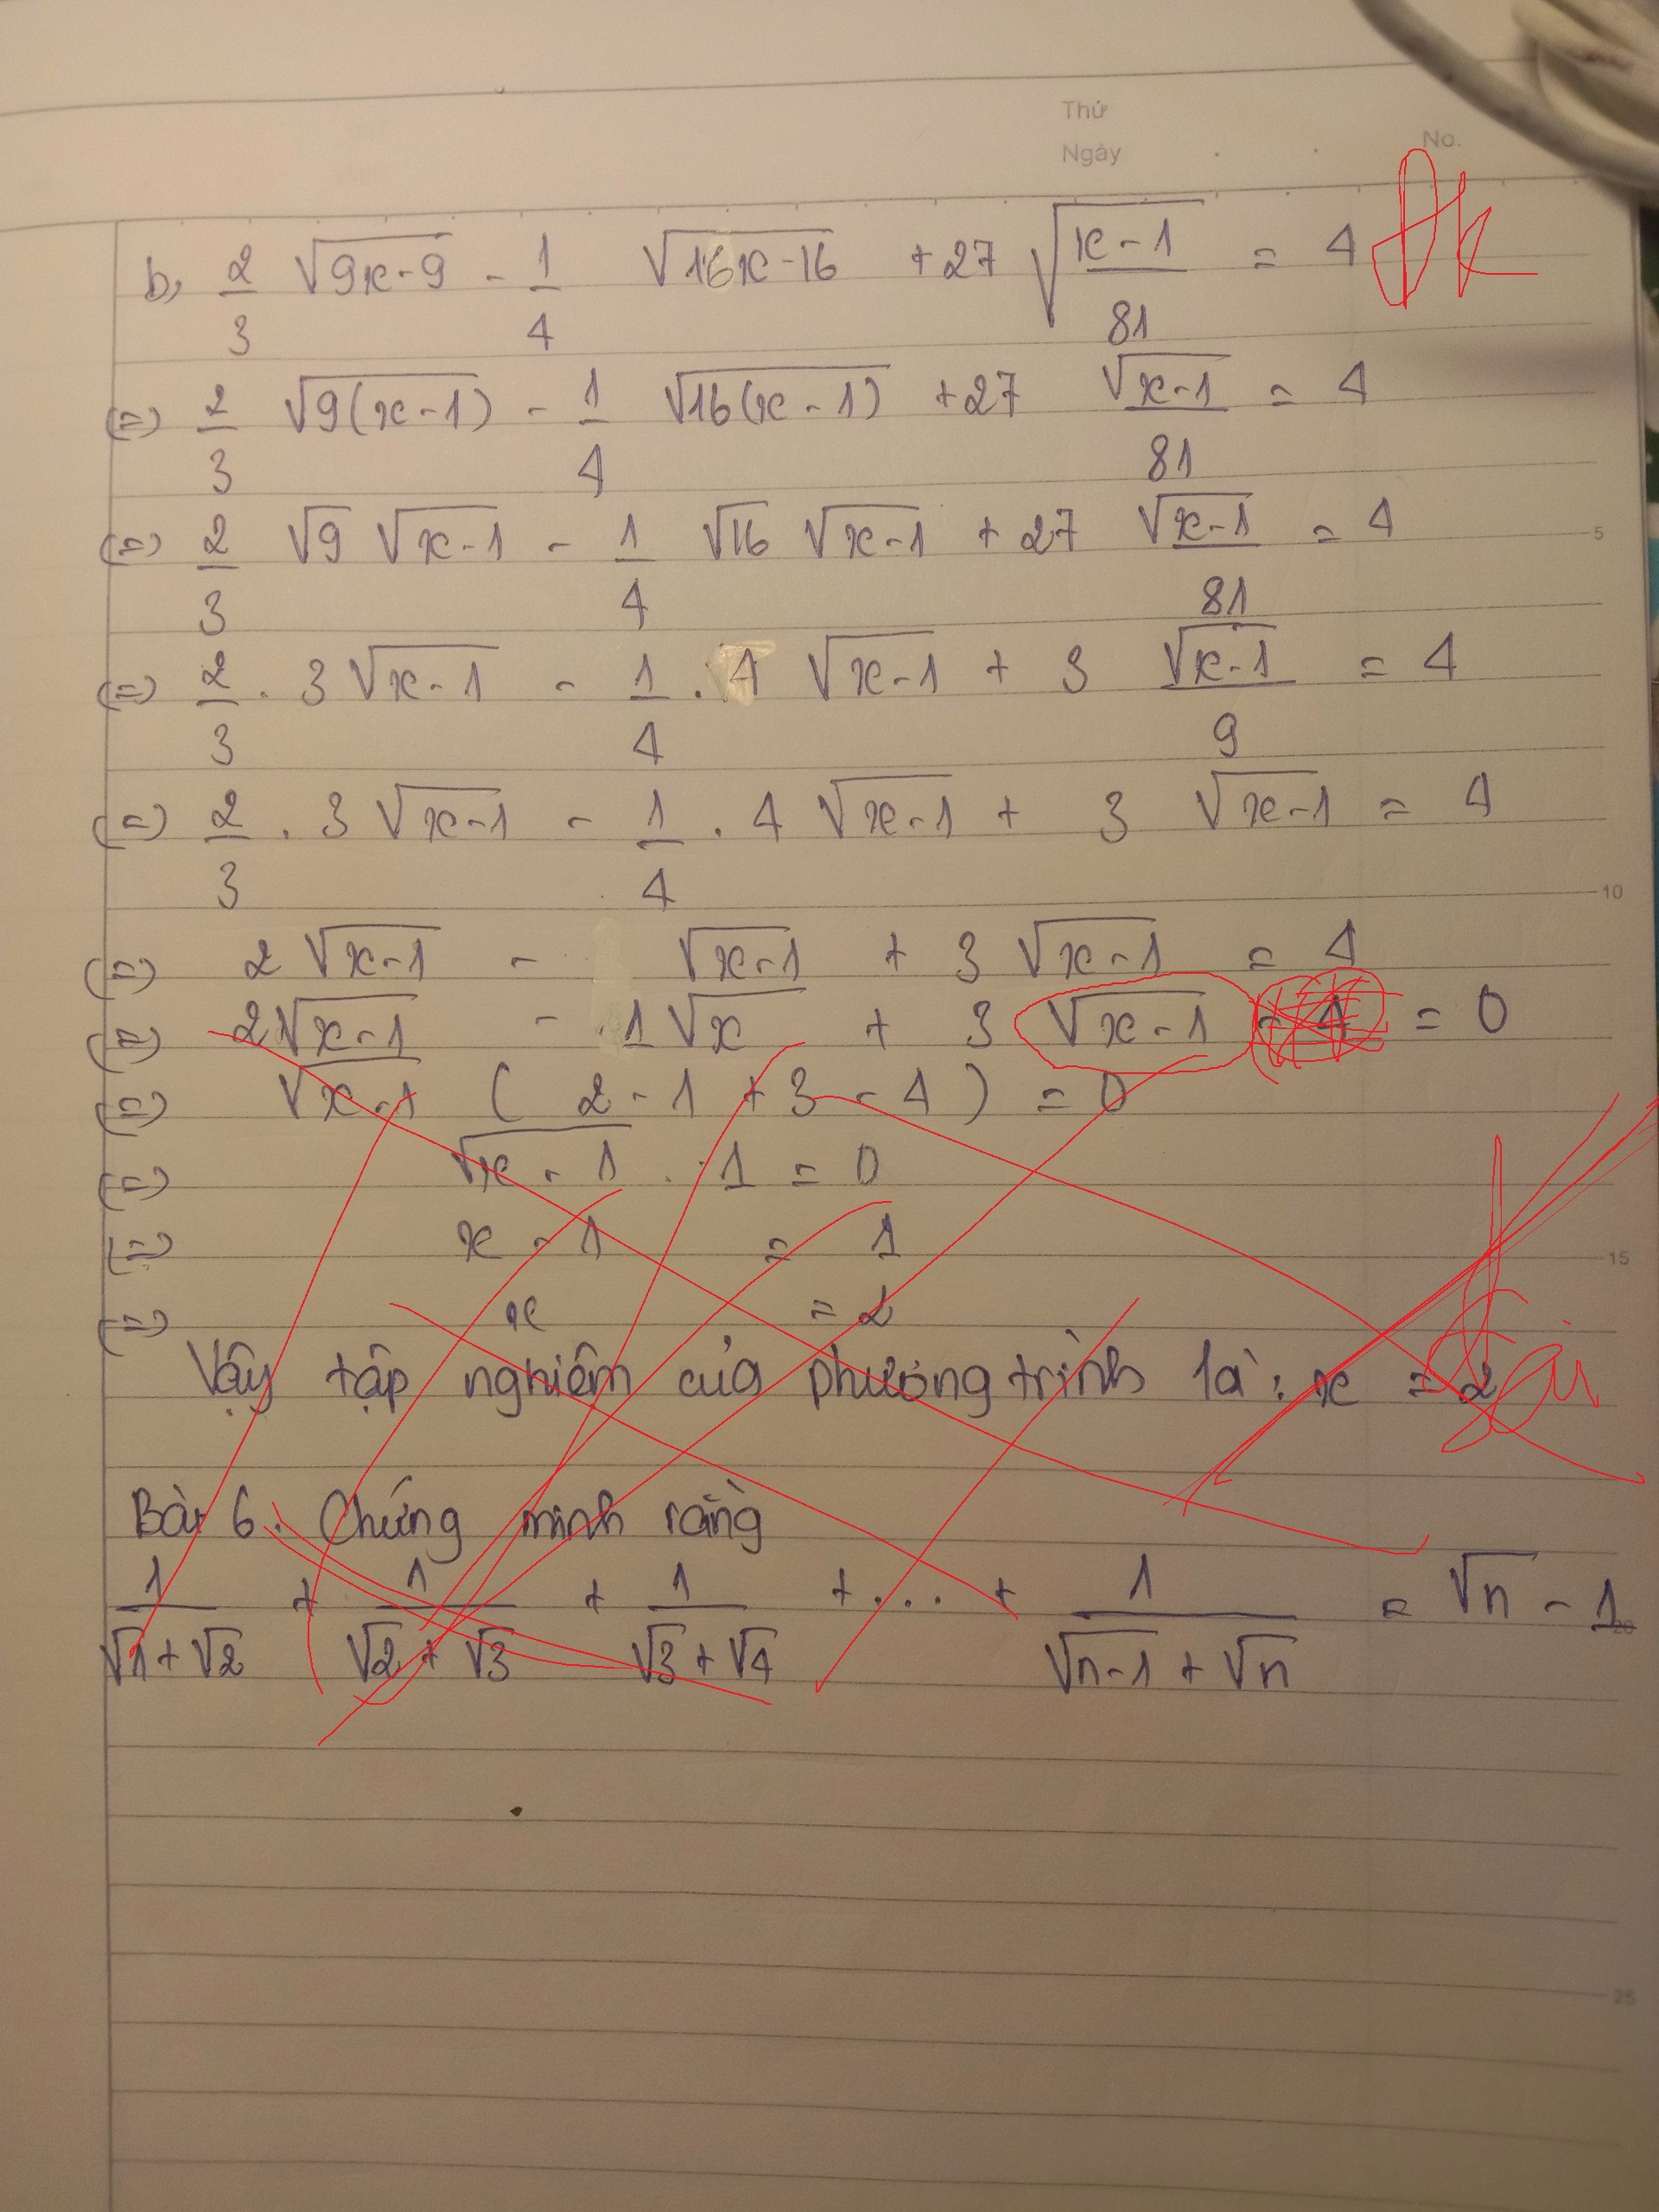 Thứ
Ngày . . No.
b, 2/3 √(9x-9) - 1/4 √(16x-16) + 27 √((x-1)/81) = 4 Đk
(=) 2/3 √(9(x-1)) - 1/4 √(16(x-1)) + 27 √(x-1)/81 = 4
(=) 2/3 √9 √(x-1) - 1/4 √16 √(x-1) + 27 √(x-1)/81 = 4
5
(=) 2/3 . 3√(x-1) - 1/4 . 4 √(x-1) + 3 √(x-1)/9 = 4
(=) 2/3 . 3 √(x-1) - 1/4 . 4 √(x-1) + 3 √(x-1) = 4
10
(=) 2 √(x-1) - √(x-1) + 3 √(x-1) = 4
(=) 2√(x-1) - 1√x + 3 √(x-1) - 4 = 0
(=) √(x-1) ( 2 - 1 + 3 - 4 ) = 0
(=) √(x-1) . 1 = 0
(=) x - 1 = 1
15
(=) x = 2
Vậy tập nghiệm của phương trình là: x = 2
Sai
Bài 6. Chứng minh rằng
1/(√1+√2) + 1/(√2+√3) + 1/(√3+√4) + .... + 1/(√(n-1)+√n) = √n - 1
20
25